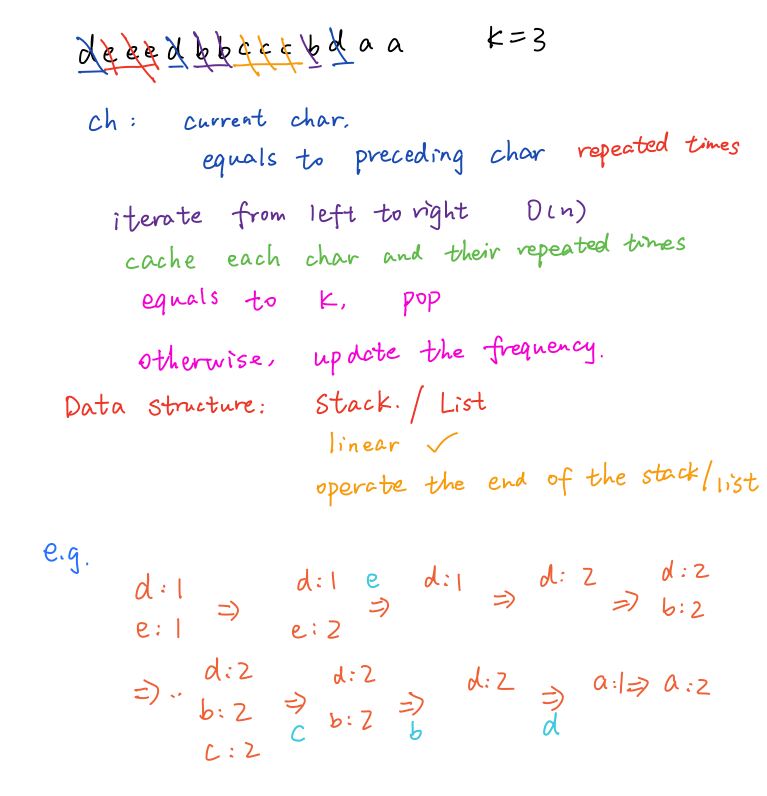 deeedbbcccbdaa k=3
ch: current char.
equals to preceding char repeated times
iterate from left to right O(n)
cache each char and their repeated times
equals to k, pop
otherwise, update the frequency.
Data structure: Stack. / List
linear ✓
operate the end of the stack/list
e.g.
d:1 d:1 e d:1 d:2 d:2
⇒ ⇒ ⇒ ⇒
e:1 e:2 b:2
d:2 d:2 d:2 a:1 ⇒ a:2
⇒ .. b:2 ⇒ b:2 ⇒ ⇒
c b d
c:2